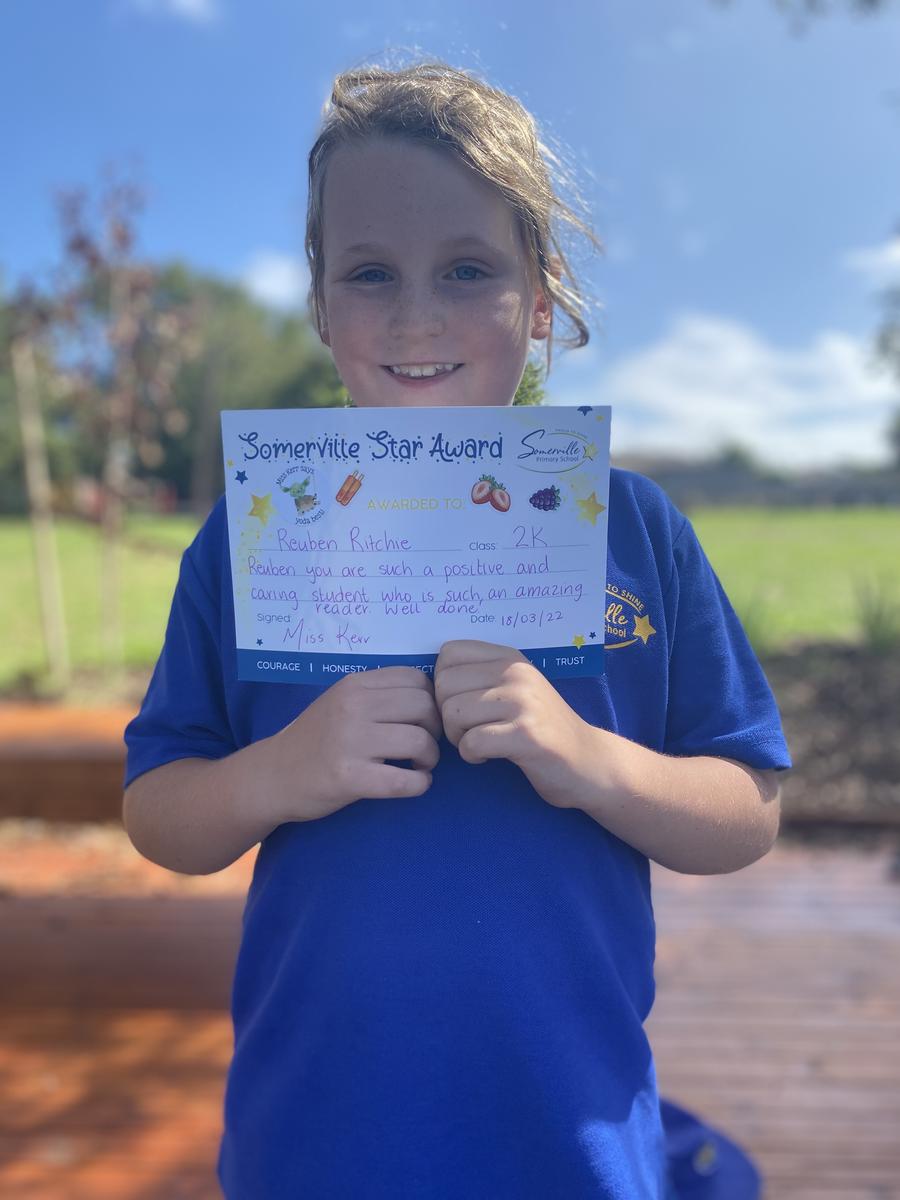 Somerville Star Award
PROUD TO SHINE
Somerville
Primary School
Miss Kerr says,
yoda best!
AWARDED TO:
Reuben Ritchie Class: 2K
Reuben you are such a positive and
caring student who is such an amazing
reader. Well done
Signed: Date: 18/03/22
Miss Kerr
COURAGE | HONESTY | | TRUST
TO SHINE